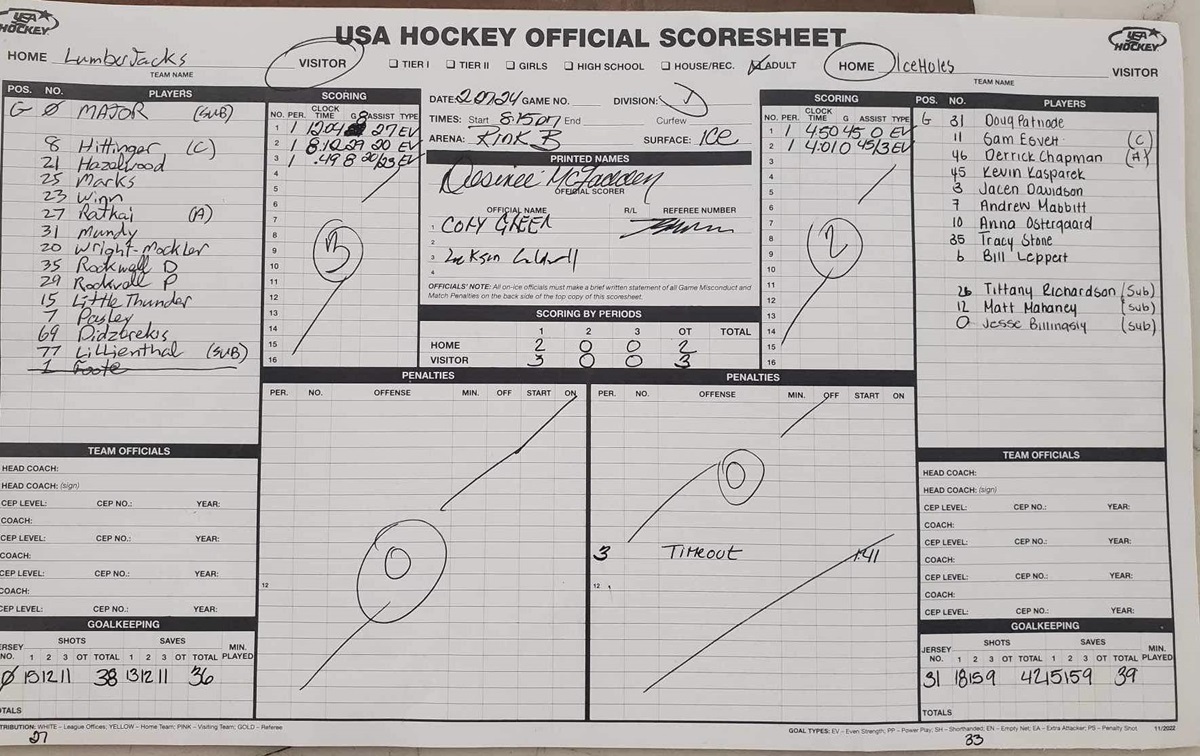 USA HOCKEY
USA HOCKEY OFFICIAL SCORESHEET
USA HOCKEY
HOME LumberJacks
TEAM NAME
VISITOR
☐ TIER I ☐ TIER II ☐ GIRLS ☐ HIGH SCHOOL ☐ HOUSE/REC. ☑ ADULT
HOME IceHoles
TEAM NAME
VISITOR
POS. NO. PLAYERS
G Ø MAJOR (SUB)
8 Hittinger (C)
21 Hazelwood
25 Marks
23 Winn
27 Ratkai (A)
31 Mundy
20 Wright-Mockler
35 Rockwell D
29 Rockwell P
15 Little Thunder
7 Pasley
69 Didzbrekis
77 Lillienthal (SUB)
1 Foote
SCORING
NO. PER. CLOCK TIME G ASSIST TYPE
1 1 1204 8 27 EV
2 1 8:12 29 20 EV
3 1 .49 8 20/23 EV
4
5
6
7
8
9
10
11
12
13
14
15
16
3
DATE: 20724 GAME NO. DIVISION: D
TIMES: Start 8:15 End Curfew
ARENA: RINK B SURFACE: ICE
PRINTED NAMES
Desiree McFadden
OFFICIAL SCORER
OFFICIAL NAME R/L REFEREE NUMBER
1 CORY GREEN
2
3
4
OFFICIALS' NOTE: All on-ice officials must make a brief written statement of all Game Misconduct and
Match Penalties on the back side of the top copy of this scoresheet.
SCORING BY PERIODS
1 2 3 OT TOTAL
HOME 2 0 0 2
VISITOR 3 0 0 3
SCORING
NO. PER. CLOCK TIME G ASSIST TYPE
1 1 450 45 0 EV
2 1 4:01 0 45/3 EV
3
4
5
6
7
8
9
10
11
12
13
14
15
16
2
POS. NO. PLAYERS
G 31 Doug Patnode
11 Sam Esvelt (C)
46 Derrick Chapman (A)
45 Kevin Kasparek
3 Jacen Davidson
7 Andrew Mabbitt
10 Anna Ostergaard
35 Tracy Stone
6 Bill Leppert
26 Tiffany Richardson (Sub)
12 Matt Mahaney (Sub)
0 Jesse Billingsly (sub)
PENALTIES
PER. NO. OFFENSE MIN. OFF START ON
0
12
PENALTIES
PER. NO. OFFENSE MIN. OFF START ON
0
3 Timeout 1:41
12
TEAM OFFICIALS
HEAD COACH:
HEAD COACH: (sign)
CEP LEVEL: CEP NO.: YEAR:
COACH:
CEP LEVEL: CEP NO.: YEAR:
COACH:
CEP LEVEL: CEP NO.: YEAR:
COACH:
CEP LEVEL: CEP NO.: YEAR:
GOALKEEPING
JERSEY NO. SHOTS 1 2 3 OT TOTAL SAVES 1 2 3 OT TOTAL MIN. PLAYED
Ø 15 12 11 38 13 12 11 36
TOTALS
TEAM OFFICIALS
HEAD COACH:
HEAD COACH: (sign)
CEP LEVEL: CEP NO.: YEAR:
COACH:
CEP LEVEL: CEP NO.: YEAR:
COACH:
CEP LEVEL: CEP NO.: YEAR:
COACH:
CEP LEVEL: CEP NO.: YEAR:
GOALKEEPING
JERSEY NO. SHOTS 1 2 3 OT TOTAL SAVES 1 2 3 OT TOTAL MIN. PLAYED
31 18 15 9 42 15 15 9 39
TOTALS
TRIBUTION: WHITE – League Offices; YELLOW – Home Team; PINK – Visiting Team; GOLD – Referee
GOAL TYPES: EV – Even Strength; PP – Power Play; SH – Shorthanded; EN – Empty Net; EA – Extra Attacker; PS – Penalty Shot 11/2022
27
33